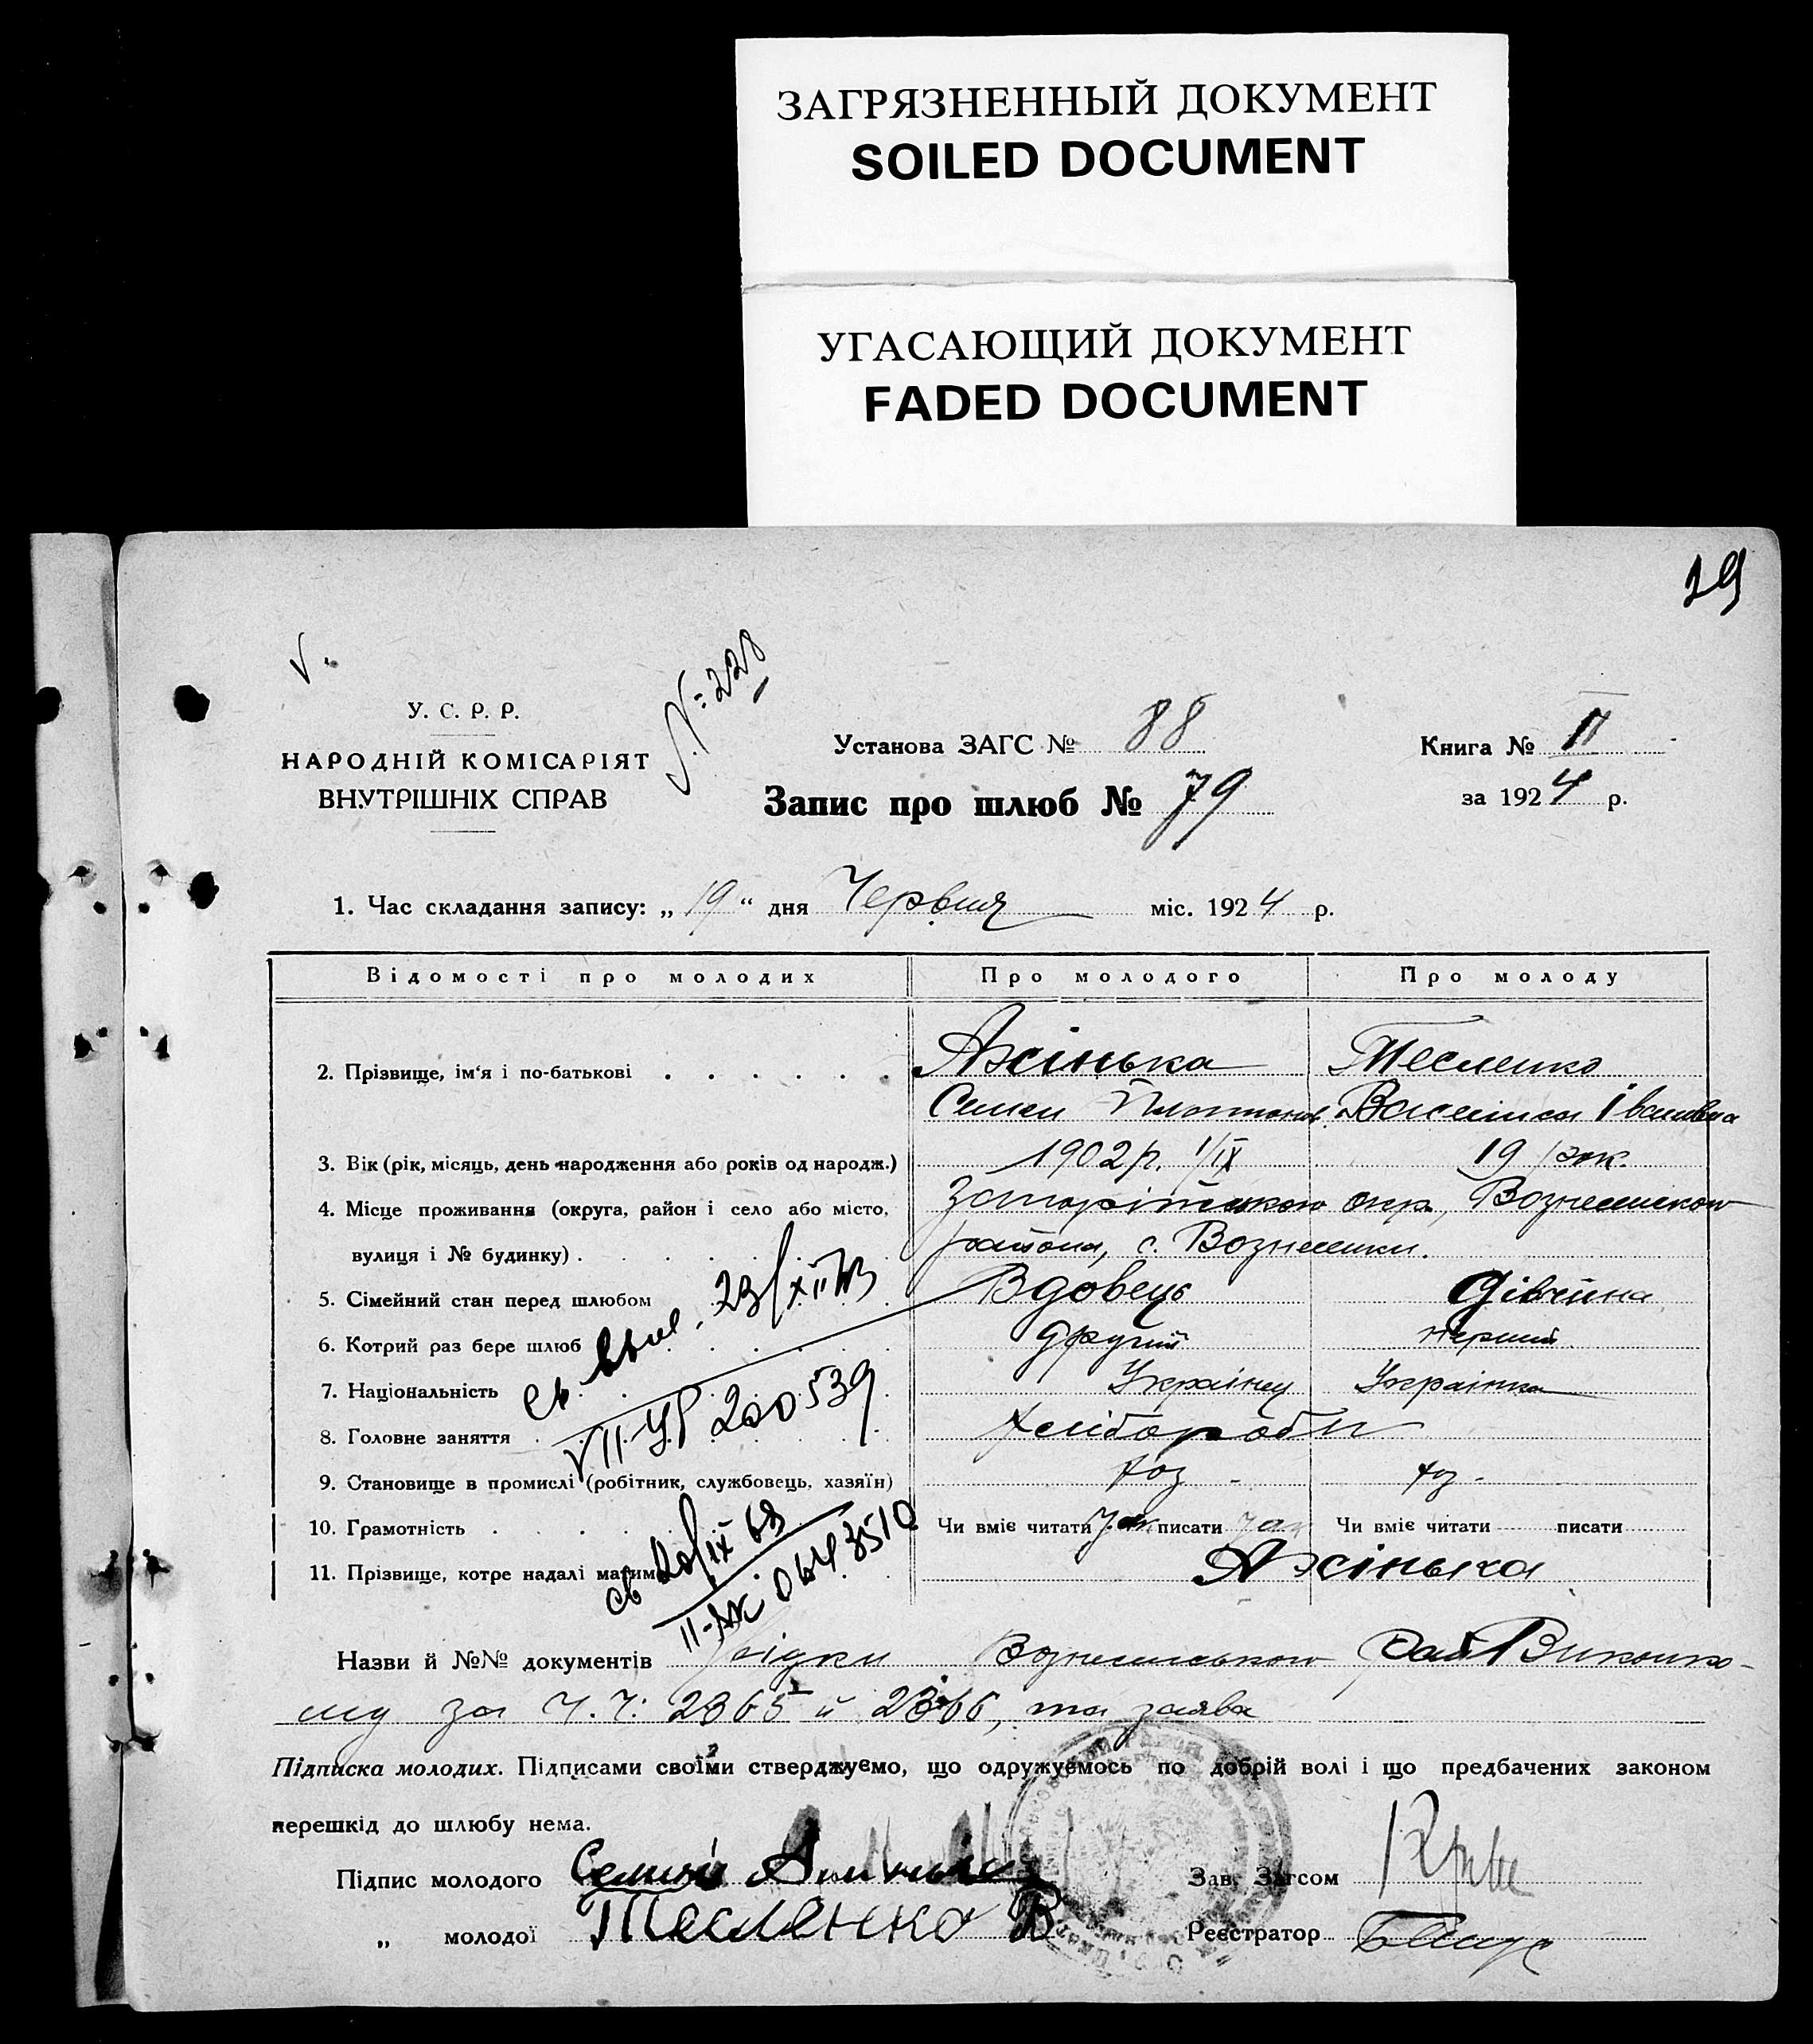 ЗАГРЯЗНЕННЫЙ ДОКУМЕНТ
SOILED DOCUMENT
УГАСАЮЩИЙ ДОКУМЕНТ
FADED DOCUMENT
19
V.
№ 228
У. С. Р. Р.
НАРОДНІЙ КОМІСАРІЯТ
ВНУТРІШНІХ СПРАВ
Установа ЗАГС № 88
Запис про шлюб № 79
Книга № II
за 1924 р.
1. Час складання запису: „ 19 “ дня Червня міс. 1924 р.
Відомості про молодих Про молодого Про молоду
2. Прізвище, ім'я і по-батькові . . . . . . Ажінька Тесленко
Семен Платонов. Василиса Івановна
3. Вік (рік, місяць, день народження або років од народж.) 1902 р. 1/IX 19 рок.
4. Місце проживання (округа, район і село або місто, Запорізького окр., Вознесенского
вулиця і № будинку) . района, с. Вознесенки.
5. Сімейний стан перед шлюбом Вдовець Дівчина
6. Котрий раз бере шлюб другий перший
7. Національність Українец Українка
8. Головне заняття хлібороби
9. Становище в промислі (робітник, службовець, хазяїн) хоз - хоз -
10. Грамотність Чи вміє читати так писати так Чи вміє читати писати
11. Прізвище, котре надалі матим Ажінька
св. выд. 23/XII 73
VII-УР 200539
св 20/IX 63
II-ЖС 0643510
Назви й №№ документів Вознесенського РайВиконко-
му за Ч.Ч: 2365 и 2366, та заява
Підписка молодих. Підписами своїми стверджуємо, що одружуємось по добрій волі і що предбачених законом
перешкід до шлюбу нема.
Підпис молодого Семен
Зав. Загсом
„ молодої Тесленко В
Реєстратор